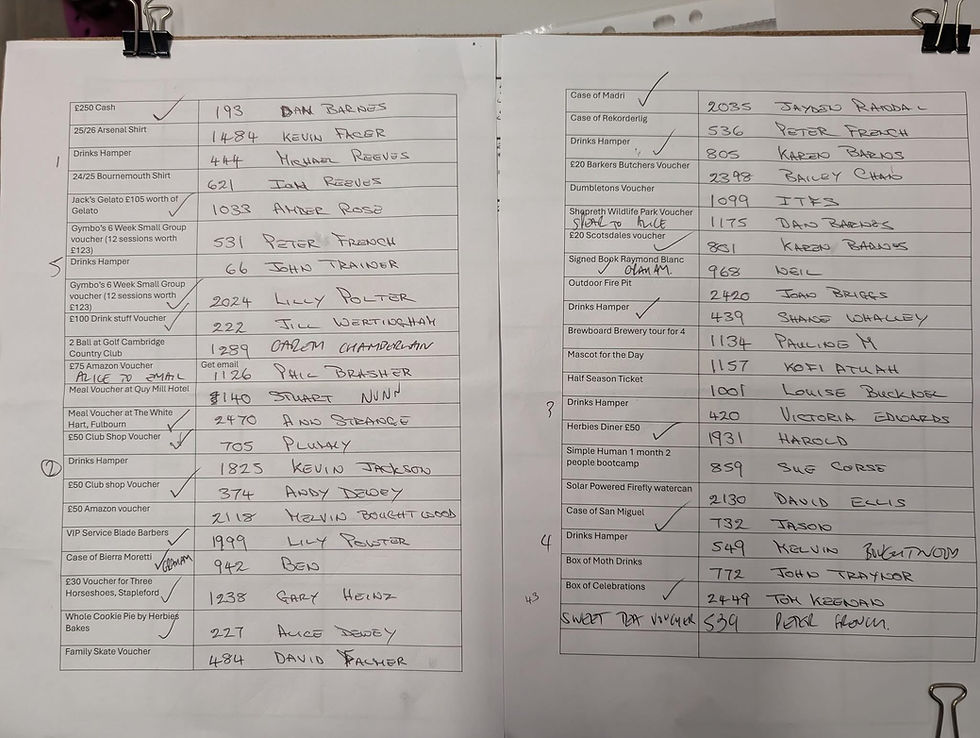 £250 Cash 193 DAN BARNES
25/26 Arsenal Shirt 1484 KEVIN FACER
1 Drinks Hamper 444 MICHAEL REEVES
24/25 Bournemouth Shirt 621 IAN REEVES
Jack's Gelato £105 worth of
Gelato 1033 AMBER ROSE
Gymbo's 6 Week Small Group
voucher (12 sessions worth 531 PETER FRENCH
£123)
5 Drinks Hamper 66 JOHN TRAINER
Gymbo's 6 Week Small Group
voucher (12 sessions worth 2024 LILLY POLTER
£123)
£100 Drink stuff Voucher 222 JILL WERTINGHAM
2 Ball at Golf Cambridge
Country Club 1289 GARETH CHAMBERLAIN
£75 Amazon Voucher Get email
ALICE TO EMAIL 1126 PHIL BRASHER
Meal Voucher at Quy Mill Hotel 140 STUART NUNN
Meal Voucher at The White
Hart, Fulbourn 2470 ANN STRANGE
£50 Club Shop Voucher 705 PLUMMY
2 Drinks Hamper 1825 KEVIN JACKSON
£50 Club shop Voucher 374 ANDY DEWEY
£50 Amazon voucher 2118 MELVIN BOUGHTWOOD
VIP Service Blade Barbers 1999 LILY POLTER
Case of Bierra Moretti 942 BEN
£30 Voucher for Three
Horseshoes, Stapleford 1238 GARY HEINZ
Whole Cookie Pie by Herbies
Bakes 227 ALICE DEWEY
Family Skate Voucher 484 DAVID PALMER
Case of Madri 2035 JAYDEN RANDAL
Case of Rekorderlig 536 PETER FRENCH
Drinks Hamper 805 KAREN BARNS
£20 Barkers Butchers Voucher 2398 BAILEY CHAO
Dumbletons Voucher 1099 ITFS
Shepreth Wildlife Park Voucher
SPEAK TO ALICE 1175 DAN BARNES
£20 Scotsdales voucher 801 KAREN BARNES
Signed Book Raymond Blanc
GRAHAM 968 NEIL
Outdoor Fire Pit 2420 JOAN BRIGGS
Drinks Hamper 439 SHANE WHALLEY
Brewboard Brewery tour for 4 1134 PAULINE M
Mascot for the Day 1157 KOFI ATUAH
Half Season Ticket 1001 LOUISE BUCKNEL
3 Drinks Hamper 420 VICTORIA EDWARDS
Herbies Diner £50 1931 HAROLD
Simple Human 1 month 2
people bootcamp 859 SUE CORSE
Solar Powered Firefly watercan 2130 DAVID ELLIS
Case of San Miguel 732 JASON
4 Drinks Hamper 549 MELVIN BOUGHTWOOD
Box of Moth Drinks 772 JOHN TRAYNOR
43 Box of Celebrations 2449 TOM KEENAN
SWEET TREAT VOUCHER 539 PETER FRENCH.